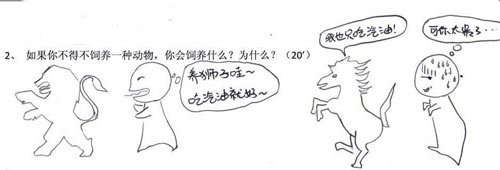 2、如果你不得不饲养一种动物，你会饲养什么？为什么？（20'）
养狮子哇~
吃汽油就好~
我也只吃汽油!
可你太累了…